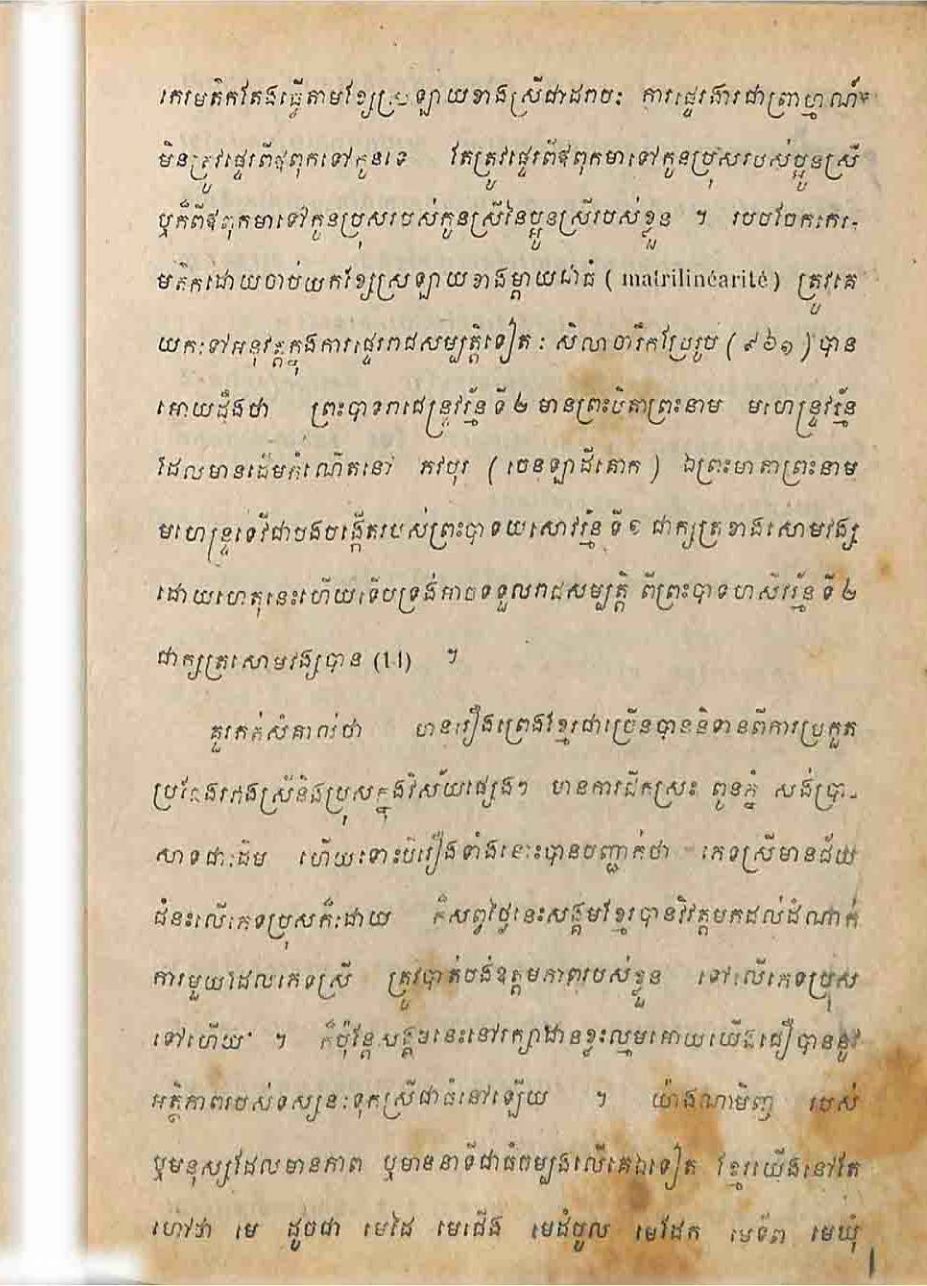 កេរមតិកតែងធ្វើតាមខ្សែស្រឡាយខាងស្រីជាដរាប: ការផ្ទេរងារជាព្រាហ្មណ៍
មិនត្រូវផ្ទេរពីឪពុកទៅកូនទេ តែត្រូវផ្ទេរពីឪពុកមាទៅកូនប្រុសរបស់ប្អូនស្រី
ឬក៏ពីឪពុកមាទៅកូនប្រុសរបស់កូនស្រីនៃប្អូនស្រីរបស់ខ្លួន ។ របបចែកកេរ-
មតិកដោយចាប់យកខ្សែស្រឡាយខាងម្ដាយជាធំ ( matrilinéarité ) ត្រូវគេ
យកទៅអនុវត្តក្នុងការផ្ទេររាជសម្បត្តិទៀត : សិលាចារឹកប្រែរូប ( ៩៦១ ) បាន
អោយដឹងថា ព្រះបាទរាជេន្រ្ទវរ្ម័ន ទី ២ មានព្រះបិតាព្រះនាម មហេន្រ្ទវរ្ម័ន
ដែលមានដើមកំណើតនៅ ភវបុរ ( ចេនឡាដីគោក ) ឯព្រះមាតាព្រះនាម
មហេន្រ្ទទេវីជាបងបង្កើតរបស់ព្រះបាទយសោវរ្ម័ន ទី ១ ជាក្សត្រខាងសោមវង្ស
ដោយហេតុនេះហើយទើបទ្រង់អាចទទួលរាជសម្បត្តិ ពីព្រះបាទហស៌វរ្ម័ន ទី ២
ជាក្សត្រសោមវង្សបាន (11) ។
គួរកត់សំគាល់ថា មានរឿងព្រេងខ្មែរជាច្រើនបាននិទានពីការប្រកួត
ប្រជែងរវាងស្រីនិងប្រុសក្នុងវិស័យផ្សេងៗ មានការជីកស្រះ ពូនភ្នំ សង់ប្រា-
សាទជាដើម ហើយទោះបីរឿងទាំងនោះបានបញ្ជាក់ថា ភេទស្រីមានជ័យ
ជំនះលើភេទប្រុសក៏ដោយ ក៏សព្វថ្ងៃនេះសង្គមខ្មែរបានវិវត្តមកដល់ដំណាក់
ការមួយដែលភេទស្រី ត្រូវបាត់បង់ឧត្តមភាពរបស់ខ្លួន ទៅលើភេទប្រុស
ទៅហើយ ។ ក៏ប៉ុន្តែសង្គមនេះនៅរក្សាដានខ្លះល្មមអោយយើងជឿបាននូវ
អត្ថិភាពរបស់ទស្សនៈទុកស្រីជាធំនៅឡើយ ។ យ៉ាងណាមិញ របស់
ឬមនុស្សដែលមានភាព ឬមាននាទីជាធំចម្បងលើគេឯទៀត ខ្មែរយើងនៅតែ
ហៅថា មេ ដូចជា មេដៃ មេជើង មេដំបូល មេដែក មេទ័ព មេឃុំ